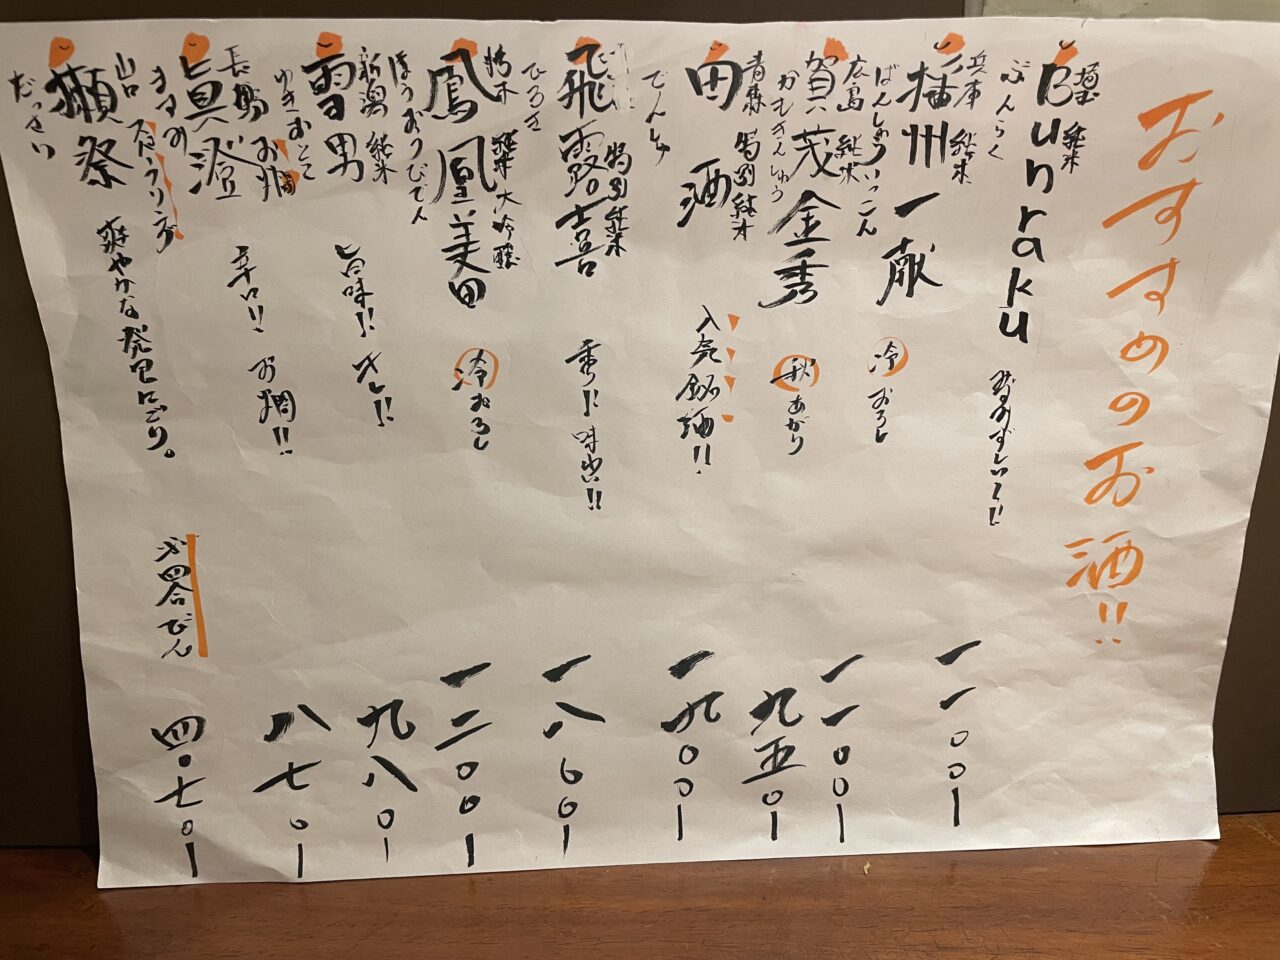 おすすめのお酒!!
埼玉 純米
Bunraku
ぶんらく
みずみずしい!!
一一〇〇ー
兵庫 純米
播州一献
ばんしゅういっこん
冷おろし
一一〇〇ー
広島 純米
賀茂金秀
かもきんしゅう
秋あがり
九五〇ー
青森 特別純米
田酒
でんしゅ
人気銘酒!!
一九〇〇ー
特別純米
飛露喜
ひろき
秀!! 味わい!!
一八〇〇ー
栃木 純米大吟醸
鳳凰美田
ほうおうびでん
冷おろし
一二〇〇ー
新潟 純米
雪男
ゆきおとこ
旨味!! キレ!!
九八〇ー
長野 お燗
眞澄
ますみ
辛口!! お燗!!
八七〇ー
山口 スパークリング
獺祭
だっさい
爽やかな発泡にごり。
四合びん
四〇七〇ー